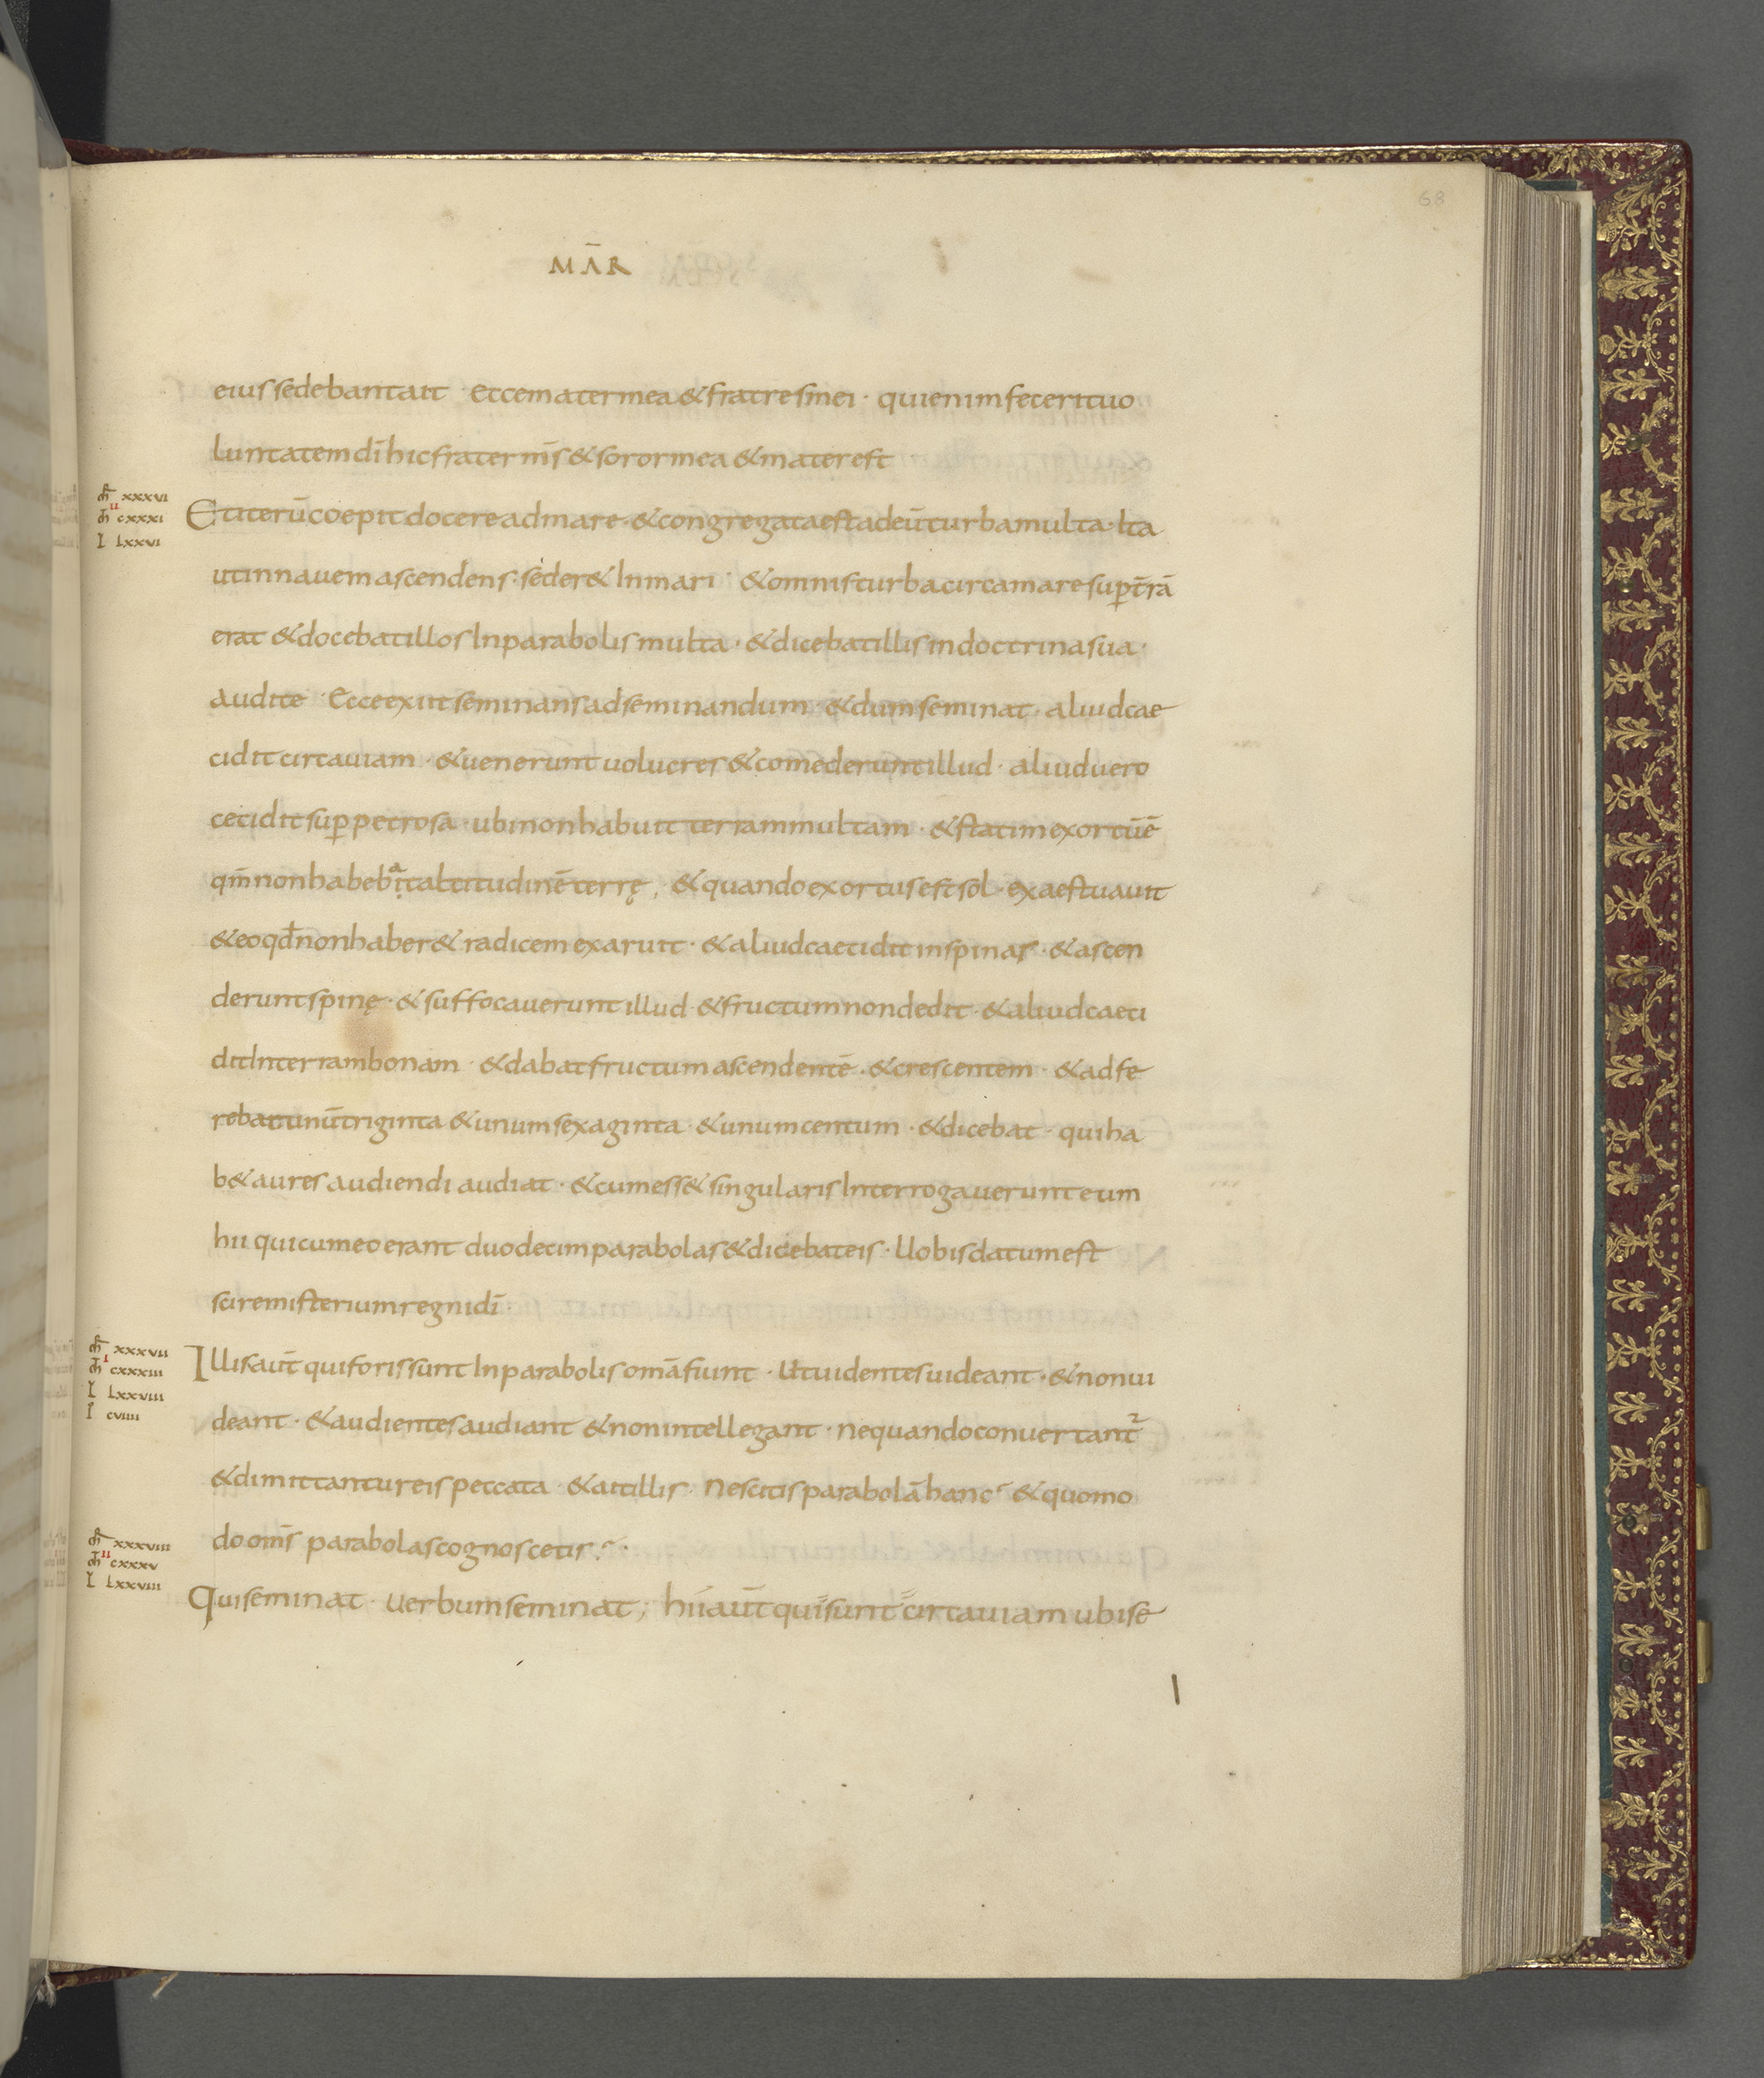 68
MAR̄
eius sedebant ait · ecce mater mea & fratres mei · qui enim fecerit uo
luntatem dī hic frater ms̄ & soror mea & mater est
m̄r xxxvi
m̄ ii cxxxi
l lxxvi
Et iterū coepit docere ad mare · & congregata est ad eū turba multa · Ita
ut in nauem ascendens · seder& In mari · & omnis turba circa mare sup t̄rā
erat & docebat illos In parabolis multa · & dicebat illis in doctrina sua ·
audite · Ecce exiit seminans ad seminandum · & dum seminat · aliud cae
cidit circa uiam · & uenerunt uolucres & comederunt illud · aliud uero
cecidit sup petrosa · ubi non habuit terram multam · & statim exortū ē
qm̄ non habebiat altitudinē terrę ; & quando exortus est sol · exaestuauit
& eo qd̄ non haber& radicem exaruit · & aliud caecidit in spinas · & ascen
derunt spinę · & suffocauerunt illud · & fructum non dedit · & aliud caeci
dit In terram bonam · & dabat fructum ascendentē · & crescentem · & adfe
rebat unū triginta & unum sexaginta · & unum centum · & dicebat · qui ha
b& aures audiendi audiat · & cum ess& singularis Interrogauerunt eum
hii qui cum eo erant duodecim parabolas & dicebat eis · Uobis datum est
scire misterium regni dī ·
m̄r xxxvii
m̄ i cxxxiii
l lxxviii
i cviiii
Illis aut̄ qui foris sunt In parabolis omā fiunt · Ut uidentes uideant · & non ui
deant · & audientes audiant & non intellegant · nequando conuertant̄
& dimittantur eis peccata · & ait illis · Nescitis parabolā hanc & quomo
do om̄s parabolas cognoscetis ·
m̄r xxxviii
m̄ ii cxxxv
l lxxviiii
Qui seminat · uerbum seminat ; hii aut̄ qui sunt circa uiam ubi se